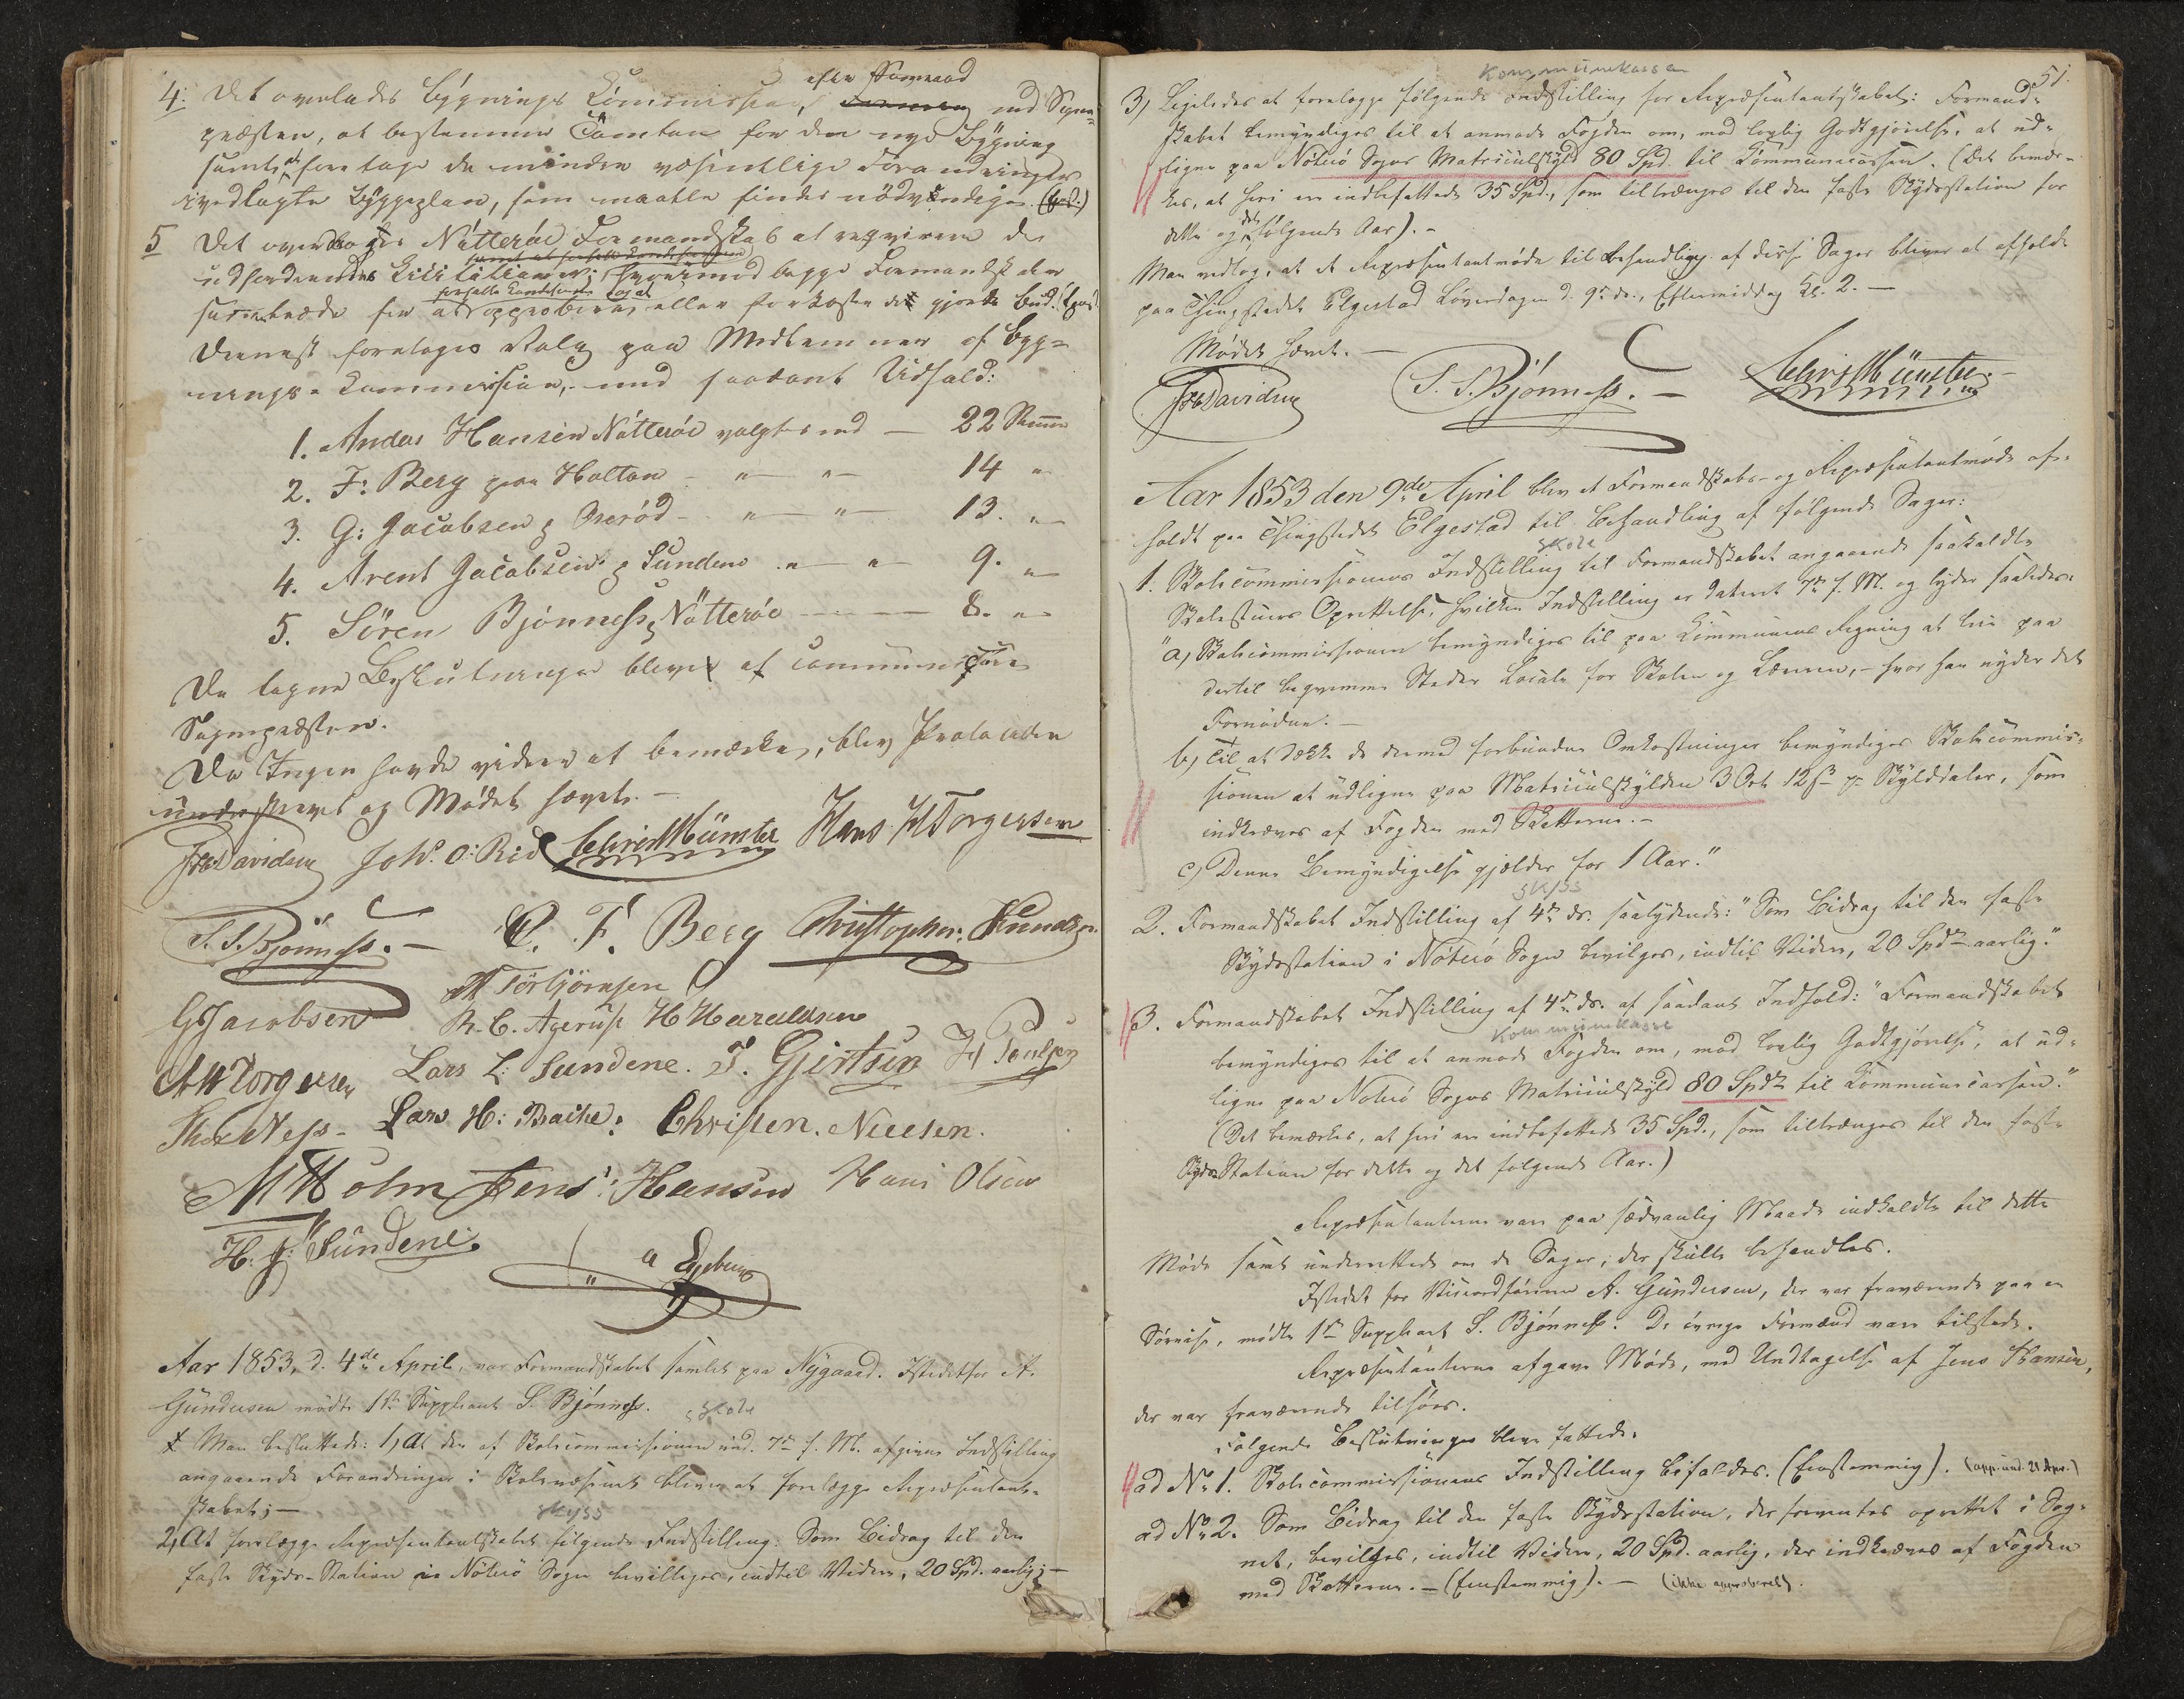 efter Samraad
4. Det overlades Bygnings Commissionen, med Sogne-
præsten, at bestemme Tomten for den nye Bygning
samt at foretage de mindre væsentlige Forandringer
i vedtagte Byggeplan, som maatte findes nødvendige.
5 Det overdroges Nøtterøe Formandskab at reqvirere de
udfordrende Licitationer; begge Formandsk
forfatte Conditioner og at
sammentræde for at approbere eller forkaste det gjorte Bud.
Dernæst foretoges Valg paa Medlemmer af Byg-
nings-Commission, med saadant Udfald:
1. Andas Hansen Nötteröe valgtes med — 22 Stemmer
2. F: Berg paa Holtan - " — " — 14 "
3. G: Jacobsen, Oserød - " — " — 13. "
4. Arent Jacobsen, Sundene " — " — 9. "
5. Sören Bjönness, Nötteröe — 8. "
De tagne Beslutninger bleve at communicere
Sognepræsten.
Da Ingen havde videre at bemærke, blev Protocollen
underskrevet og Mødet hævet. —
Fr. Davidsen Joh. O: Rød Chris Münster Hans H Torgersen
S. S. Bjönness. — C. F. Berg Christopher Knudsen
H Torbjörnsen
G Jacobsen R. C. Agerup H Haraldsen
A H Torgersen Lars L: Sundene. T. Gjertsen H Poulsen
Thor Ness - Lars H: Bache: Christen. Nielsen.
M Holm Jens: Hansen Hans Olsen
H. J: Sundene.
a
Aar 1853, d. 4de April, var Formandskabet samlet paa Nygaard. Istedetfor A.
Gundersen mødte 1ste Suppleant S. Bjønness.
Skole
Man besluttede: 1, At den af Skolecommissionen und. 7de f. M. afgivne Indstilling
angaaende Forandringer i Skolevæsenet bliver at forelægge Repræsentant-
skabet; —
skyss
2, At forelægge Repræsentantskabet følgende Indstilling: Som Bidrag til den
faste Skyds-Station i Nøterø Sogn bevilliges, indtil Videre, 20 Spd. aarlig; —
51.
Kommunekassen
3, Ligeledes at forelægge følgende Indstilling for Repræsentantskabet: Formand-
skabet bemyndiges til at anmode Fogden om, mod lovlig Godtgjørelse, at ud-
ligne paa Nøterø Sogns Matriculskyld 80 Spd. til Kommunecassen. (Det bemær-
kes, at heri er indbefattede 35 Spd., som tiltrænges til den faste Skydsstation for
dette og det følgende Aar). -
Man vedtog, at et Repræsentantmøde til Behandling af disse Sager bliver at afholde
paa Thingstedet Elgestad Løverdagen d. 9de ds., Eftermiddag Kl. 2. —
Mødet hævet. —
Fr. Davidsen S. S. Bjönness. — Chris Münster. —
Aar 1853 den 9de April blev et Formandskabs- og Repræsentantmøde af-
holdt paa Thingstedet Elgestad til Behandling af følgende Sager:
skole
1. Skolecommissionens Indstilling til Formandskabet angaaende saakaldte
Skolestuers Oprettelse, hvilken Indstilling er dateret 7de f. M. og lyder saaledes:
"a, Skolecommissionen bemyndiges til paa Kommunens Regning at leie paa
dertil beqvemme Steder Locale for Skolen og Læreren, - hvor han nyder det
Fornødne. —
b, Til at dække de dermed forbundne Omkostninger bemyndiges Skolecommis-
sionen at udligne paa Matriculskylden 3 Ort 12 ß pr Skylddaler, som
indkræves af Fogden med Skatterne. -
c, Denne Bemyndigelse gjælder for 1 Aar."
skyss
2. Formandskabet Indstilling af 4de ds. saalydende: "Som Bidrag til den faste
Skydsstation i Nøterø Sogn bevilges, indtil Videre, 20 Spdr aarlig."
3. Formandskabet Indstilling af 4de ds. af saadant Indhold: "Formandskabet
Kommunekasse
bemyndiges til at anmode Fogden om, mod lovlig Godtgjørelse, at ud-
ligne paa Nøterø Sogns Matriculskyld 80 Spdr til Kommunecassen."
(Det bemærkes, at heri er indbefattede 35 Spd., som tiltrænges til den faste
Skyds-Station for dette og det følgende Aar.)
Repræsentanterne vare paa sædvanlig Maade indkaldte til dette
Møde samt underrettede om de Sager, der skulle behandles.
Istedet for Viceordfører A. Gundersen, der var fraværende paa en
Søreise, mødte 1ste Suppleant S. Bjønness. De øvrige Formænd vare tilstede.
Repræsentanterne afgave Møde, med Undtagelse af Jens Hansen,
der var fraværende tilsøes.
Følgende Beslutninger bleve fattede:
ad No 1. Skolecommissionens Indstilling bifaldes. (Eenstemmig). (app. und. 21 Apr.)
ad No 2. Som Bidrag til den faste Skydsstation, der forventes oprettet i Sog-
net, bevilges, indtil Videre, 20 Spd. aarlig, der indkræves af Fogden
med Skatterne. — (Eenstemmig). — (ikke approberet).